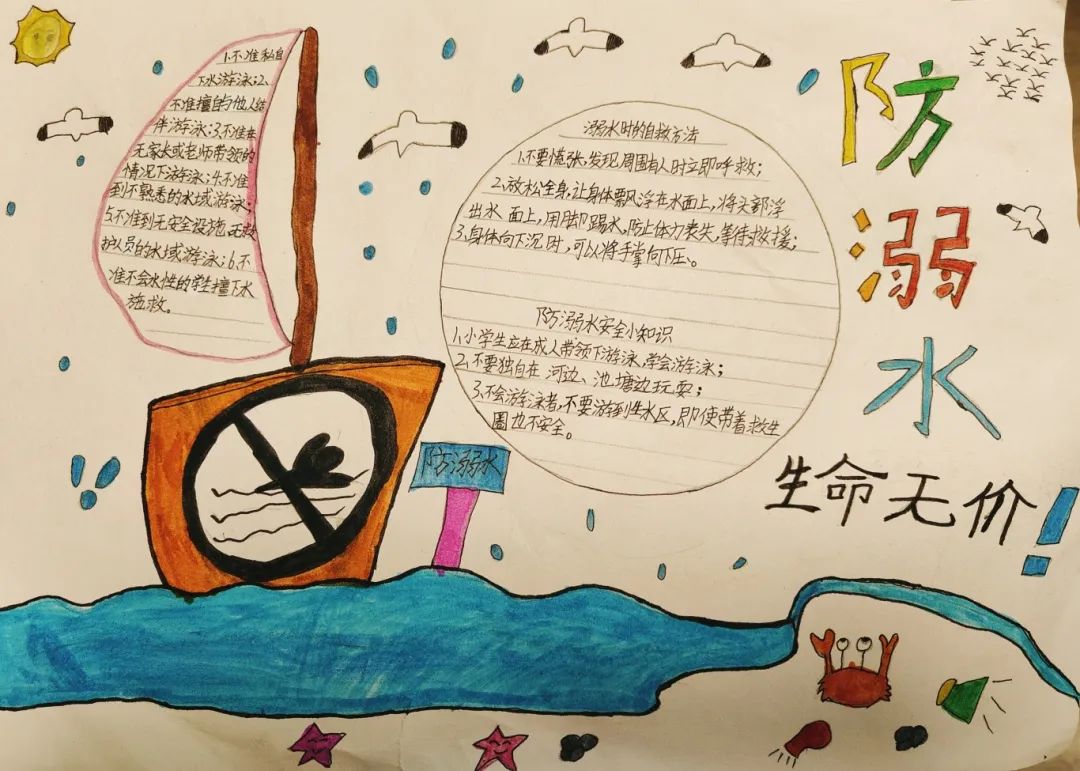 1.不准私自
下水游泳;2.
不准擅自与他人结
伴游泳;3.不准在
无家长或老师带领的
情况下游泳;4.不准
到不熟悉的水域游泳;
5.不准到无安全设施、无救
护人员的水域游泳;6.不
准不会水性的学生擅下水
施救。
溺水时的自救方法
1.不要慌张,发现周围有人时立即呼救;
2.放松全身,让身体飘浮在水面上,将头部浮
出水面上,用脚踢水,防止体力丧失,等待救援;
3.身体向下沉时,可以将手掌向下压、。
防溺水安全小知识
1.小学生应在成人带领下游泳,学会游泳;
2.不要独自在河边、池塘边玩耍;
3.不会游泳者,不要游到生水区,即使带着救生
圈也不安全。
防溺水
生命无价!
防溺水